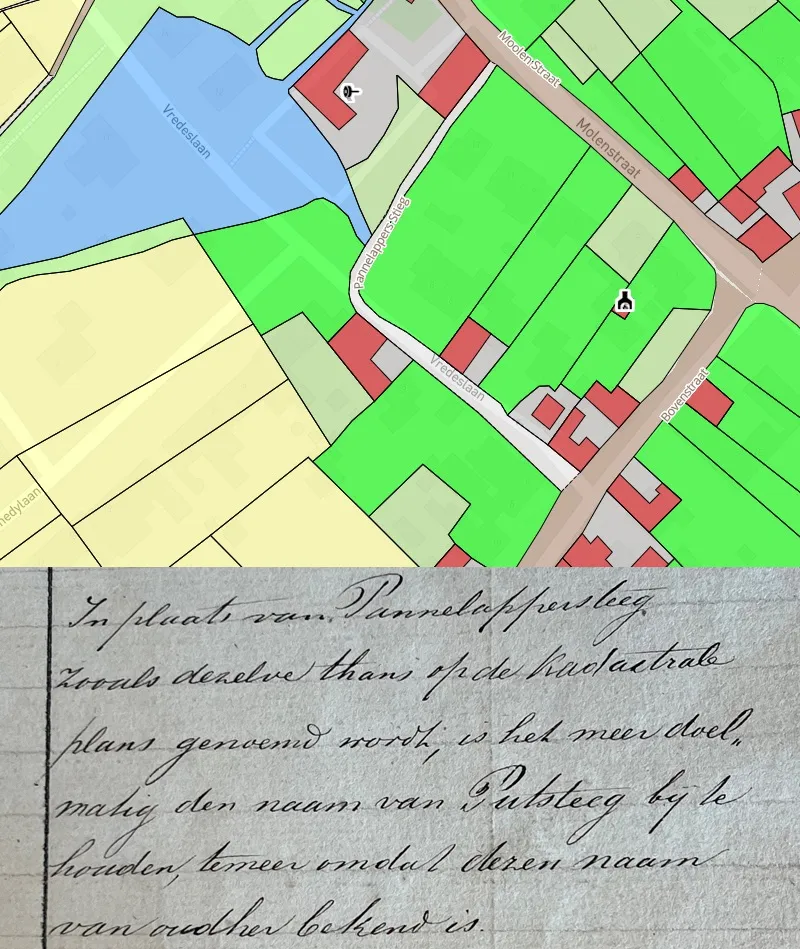 MoolenStraat
Molenstraat
Vredeslaan
Pannelappers-Stieg
Vredeslaan
Bovenstraat
nedylaan
In plaats van Pannelappersteeg
zooals dezelve thans op de Kadastrale
plans genoemd wordt, is het meer doel„
matig den naam van Putsteeg bij te
houden, temeer omdat dezen naam
van oudher bekend is.